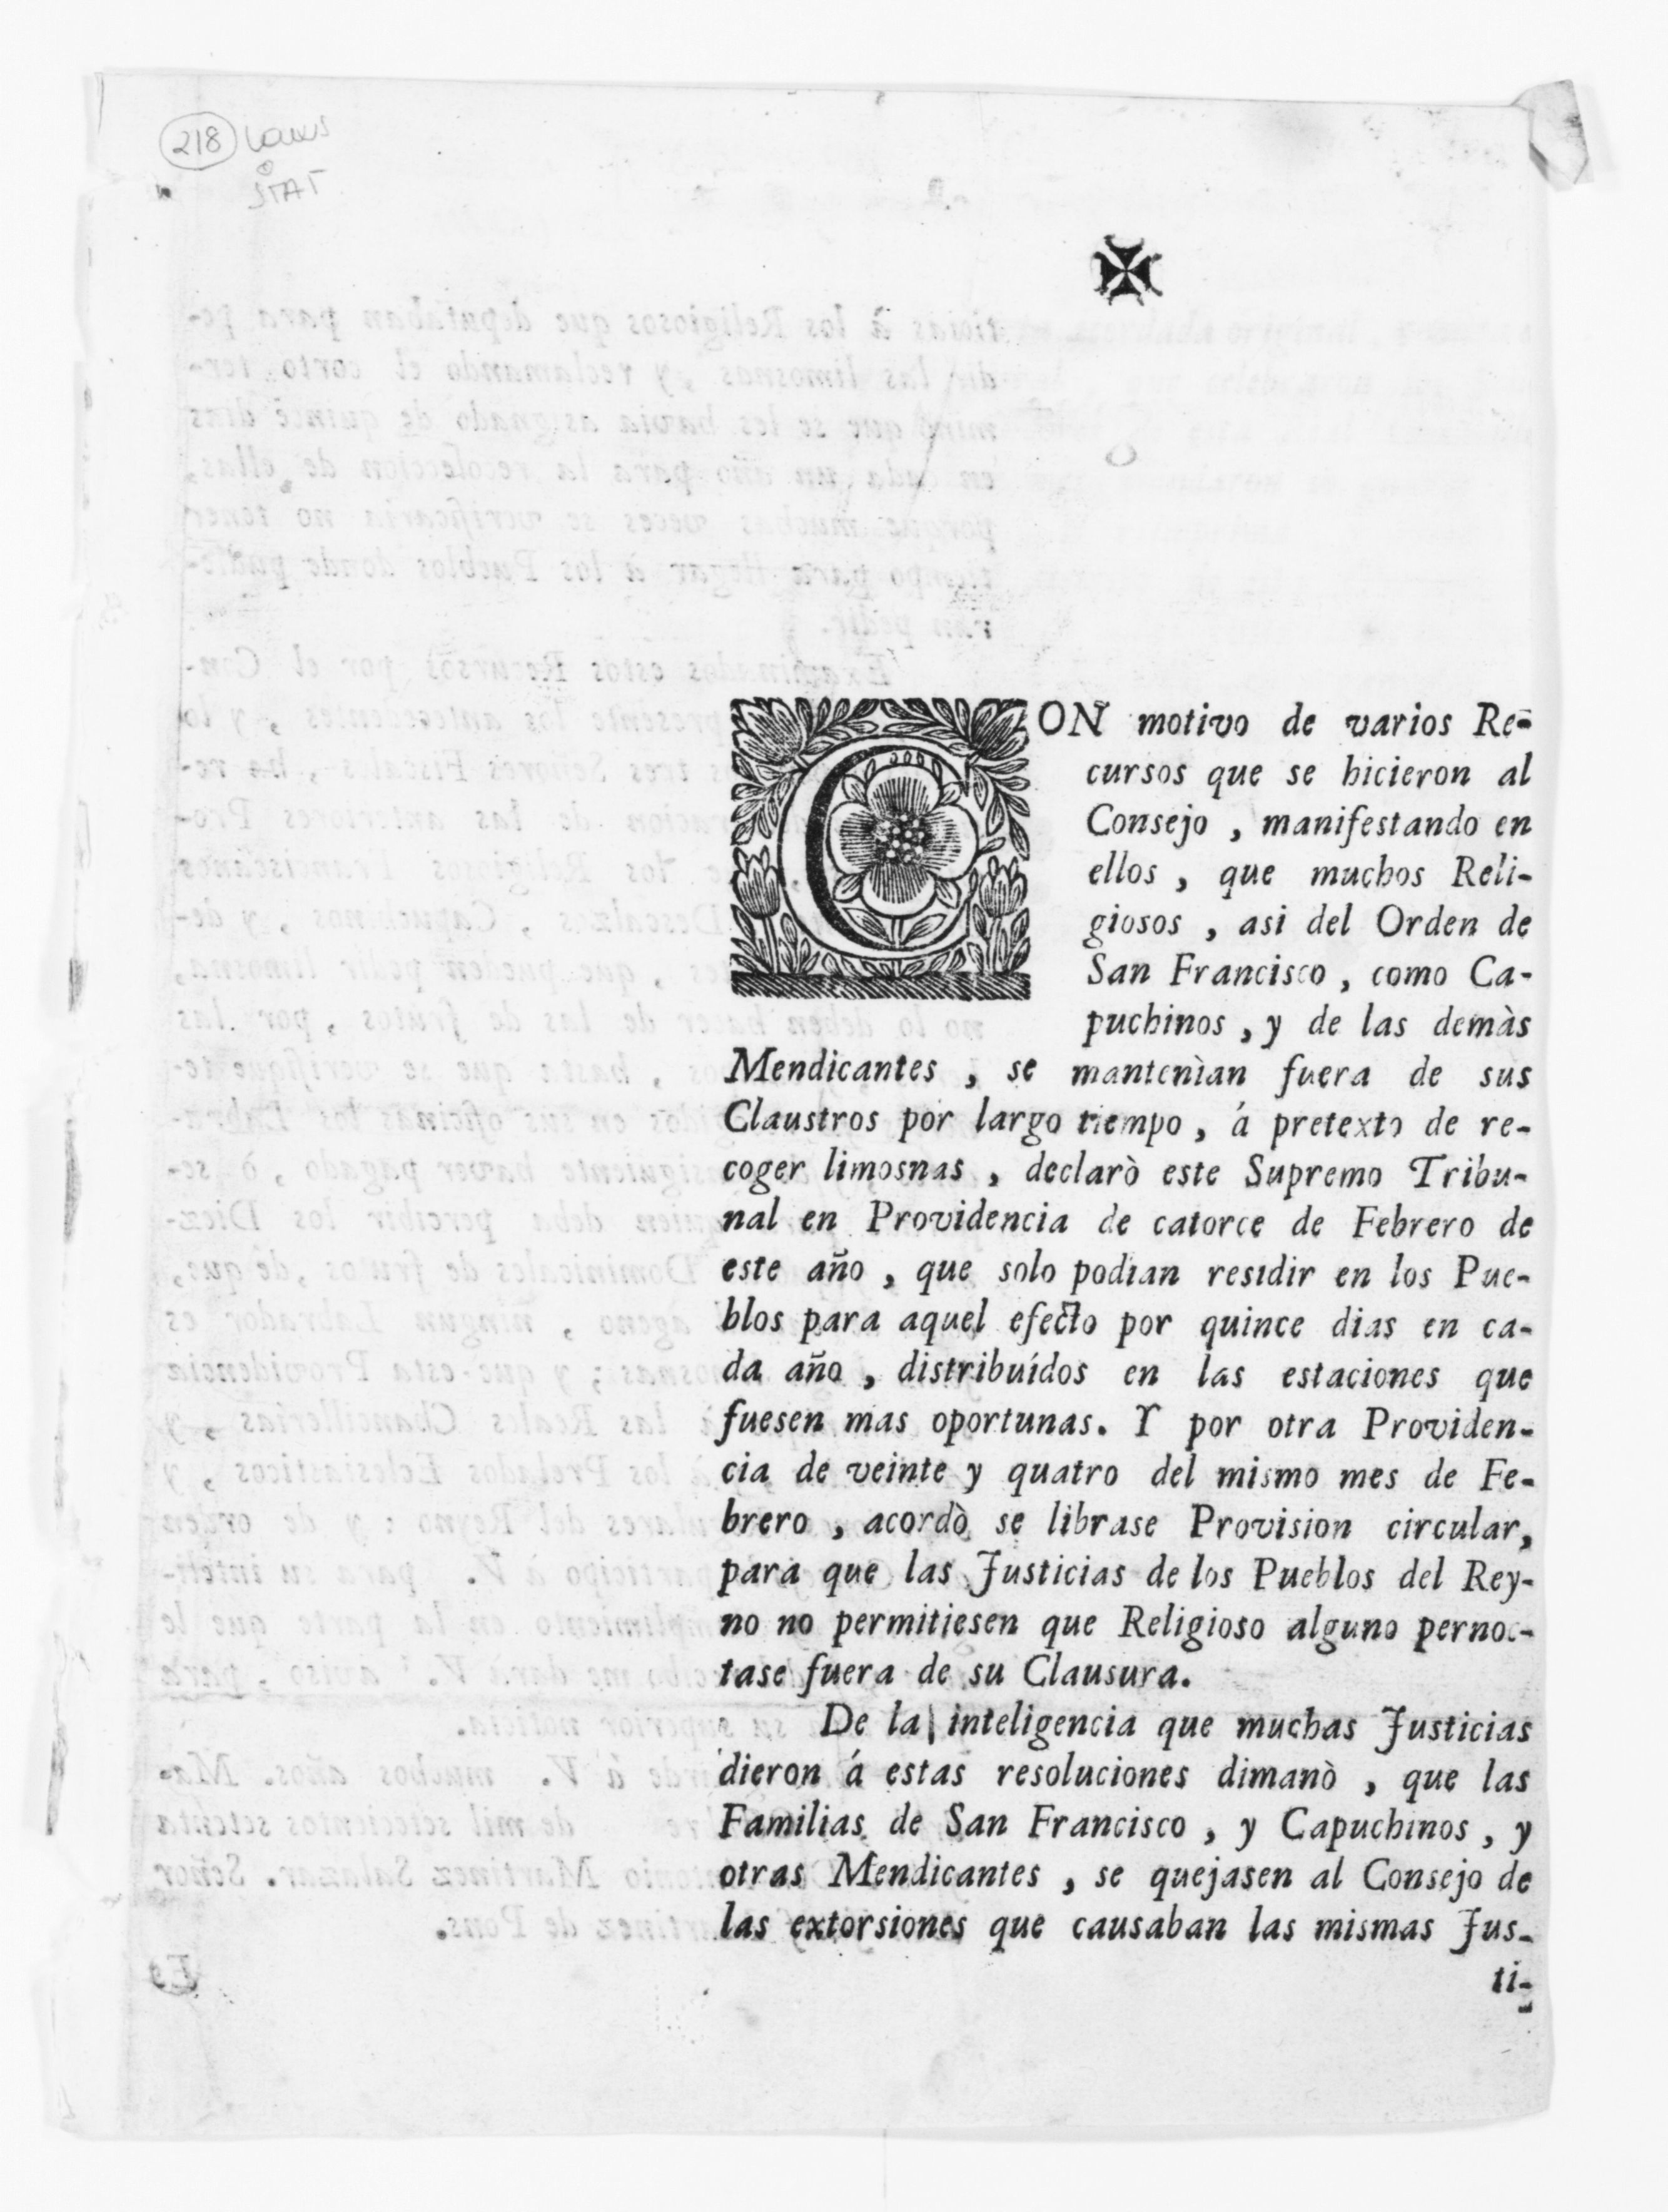 218 Laws
STAT
CON motivo de varios Re-
cursos que se hicieron al
Consejo , manifestando en
ellos , que muchos Reli-
giosos , asi del Orden de
San Francisco , como Ca-
puchinos , y de las demàs
Mendicantes , se mantenìan fuera de sus
Claustros por largo tiempo , á pretexto de re-
coger limosnas , declarò este Supremo Tribu-
nal en Providencia de catorce de Febrero de
este año , que solo podian residir en los Pue-
blos para aquel efecto por quince dias en ca-
da año , distribuídos en las estaciones que
fuesen mas oportunas. Y por otra Providen-
cia de veinte y quatro del mismo mes de Fe-
brero , acordò se librase Provision circular,
para que las Justicias de los Pueblos del Rey-
no no permitiesen que Religioso alguno pernoc-
tase fuera de su Clausura.
De la inteligencia que muchas Justicias
dieron á estas resoluciones dimanò , que las
Familias de San Francisco , y Capuchinos , y
otras Mendicantes , se quejasen al Consejo de
las extorsiones que causaban las mismas Jus-
ti-